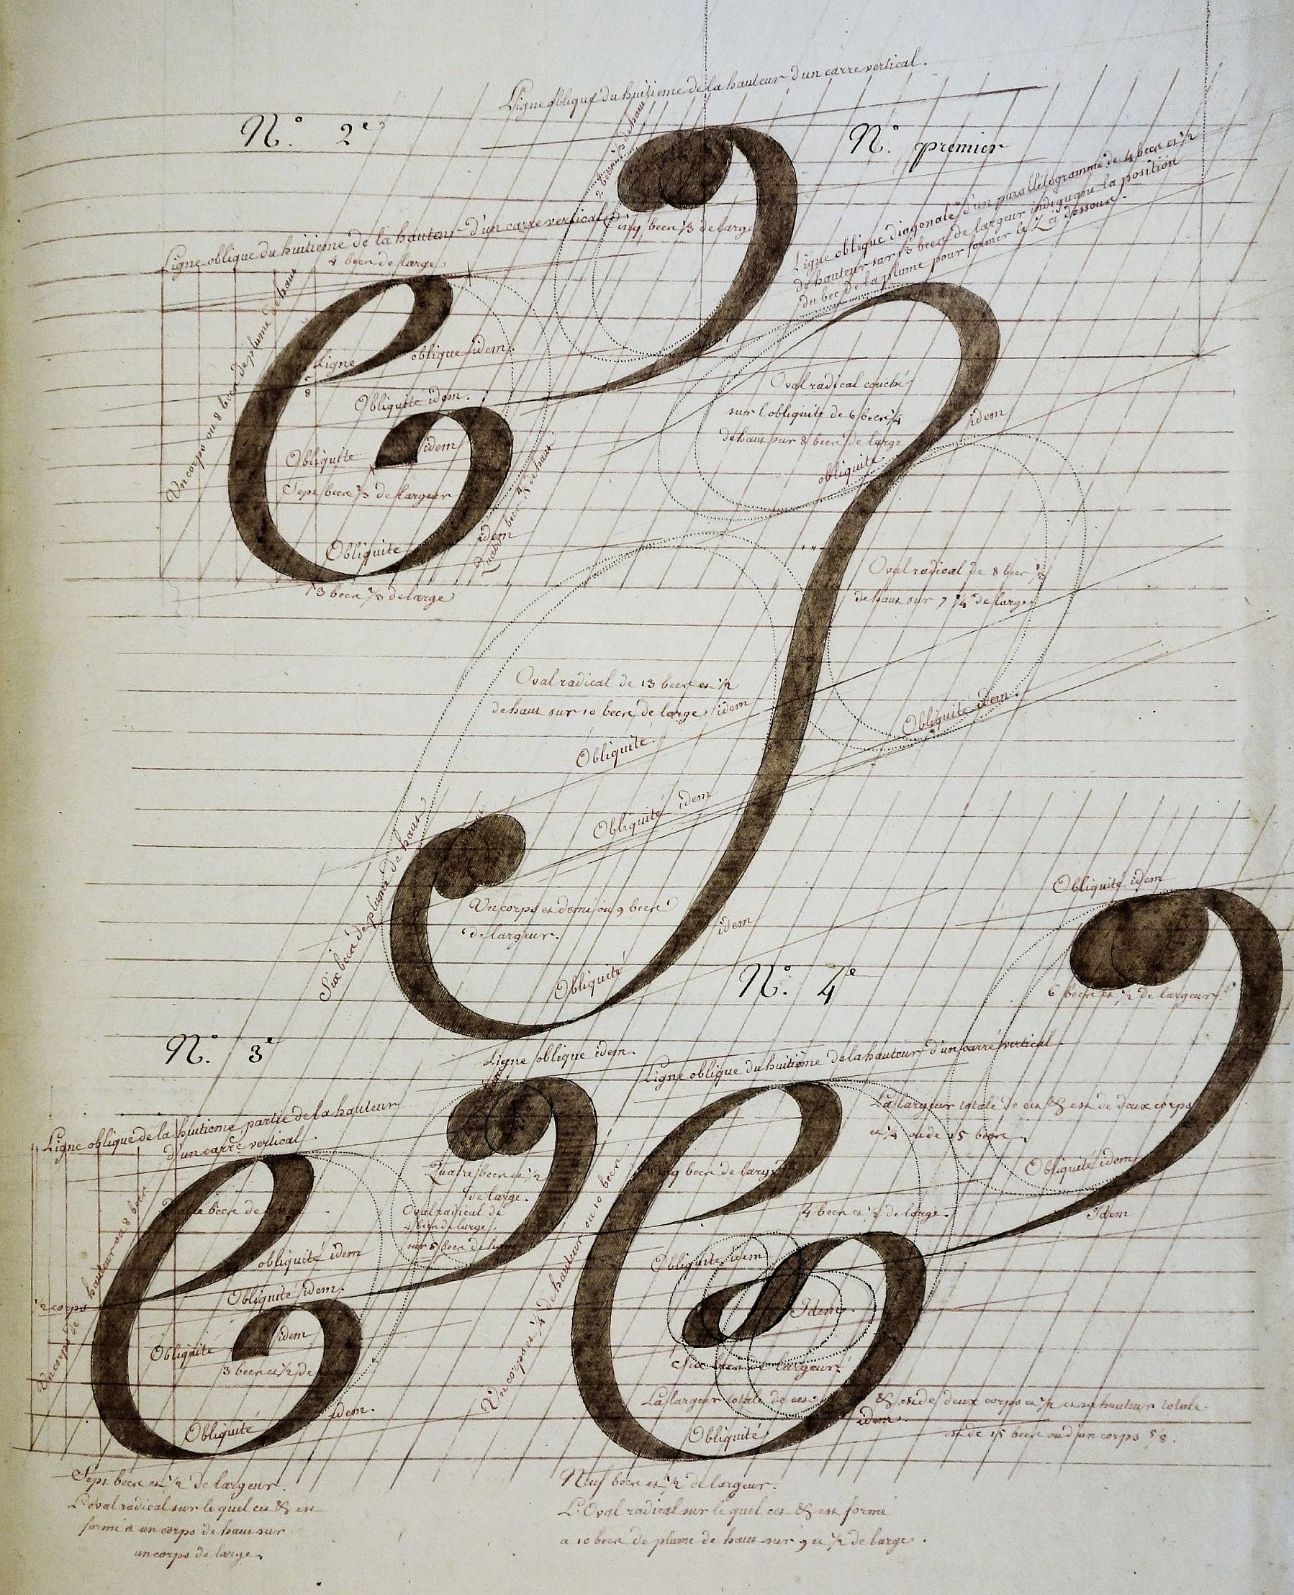 Ligne oblique du huitieme de la hauteur d'un carre vertical.
N.º 2e
N.º premier
2 becs de haut
Cinq becs 1/3 de large
Ligne oblique du huitieme de la hauteur d'un carre vertical
4 becs de large
Ligne oblique diagonale d'un parallelogramme de 4 becs et 1/2
de hauteur sur 13 becs de largeur indiquant la position
du bec de la plume pour former le Z ci dessous.
Un corps ou 8 becs de plume de haut
Ligne oblique idem.
Obliquite idem.
Obliquite idem
Sept becs 1/3 de largeur
Obliquite idem
13 becs 1/3 de large
Oval radical couché
sur l'obliquité de 6 becs 1/4
de haut sur 8 becs de large
obliquité idem
Oval radical de 8 becs 1/3
de haut sur 7 1/4 de large
Oval radical de 13 becs et 1/2
de haut sur 10 becs de large
Obliquité idem
Obliquité idem
Obliquité idem.
Six becs de plume de haut
Un corps et demi ou 9 becs
de largeur.
Obliquité idem
N.º 4e
Obliquité idem
6 becs et 1/2 de largeur
N.º 3e
Ligne oblique idem.
Ligne oblique du huitième de la hauteur d'un carré vertical
Ligne oblique de la huitieme partie de la hauteur
d'un carré vertical.
La largeur totale de cet & est de deux corps
et 1/4 ou de 15 becs.
Quatre becs et 1/2
de large.
Oval radical de
Cinq becs de large
4 becs et 1/2 de large.
Obliquité idem
Idem
obliquité idem
Obliquité idem.
Obliquité idem
3 becs et 1/2 de
Obliquité idem.
Un corps de hauteur ou 8 becs
Un corps et 1/4 de hauteur ou 10 becs
Obliquité idem
Idem.
Six becs de largeur.
La largeur totale de cet & est de deux corps et 1/2 et sa hauteur totale
est de 15 becs ou d'un corps 5/8.
Obliquité idem.
Sept becs et 1/2 de largeur.
L'oval radical sur le quel cet & est
formé a un corps de haut sur
un corps de large.
Neuf becs et 1/2 de largeur.
L'Oval radical sur le quel cet & est formé
a 10 becs de plume de haut sur 9 et 1/2 de large.